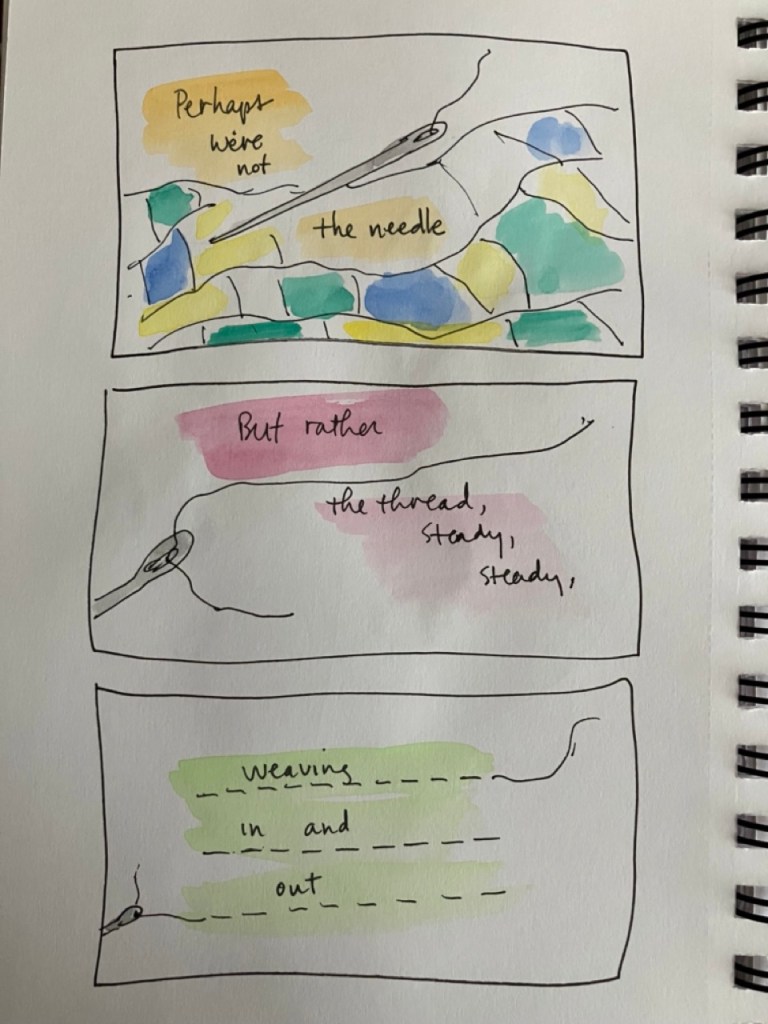 Perhaps
we're
not
the needle
But rather
the thread,
steady,
steady,
weaving
in and
out